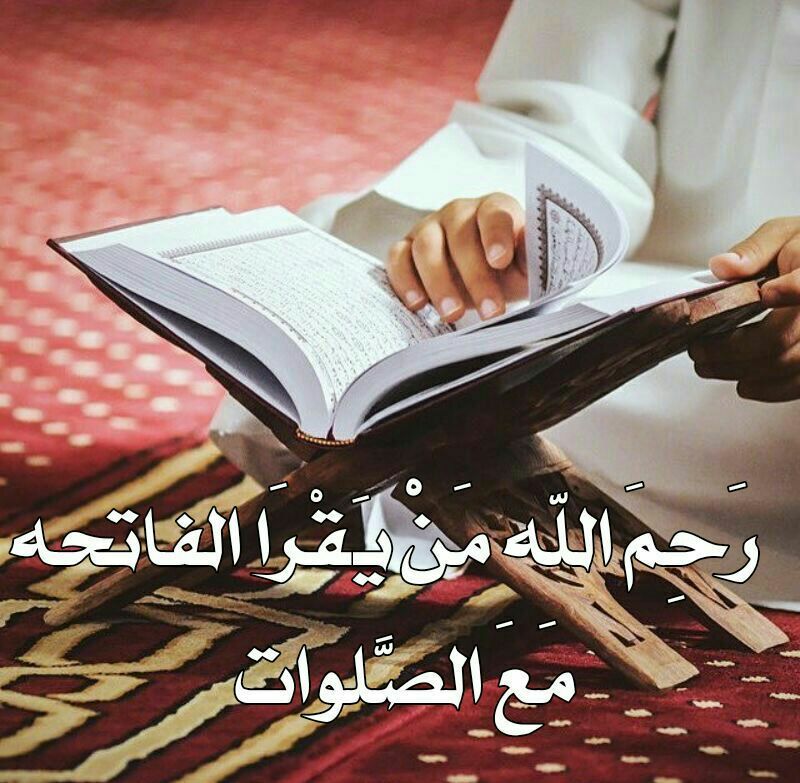 رَحِمَ اللّه مَنْ يَقْرَا الفاتحه
مَعَ الصَّلَوات